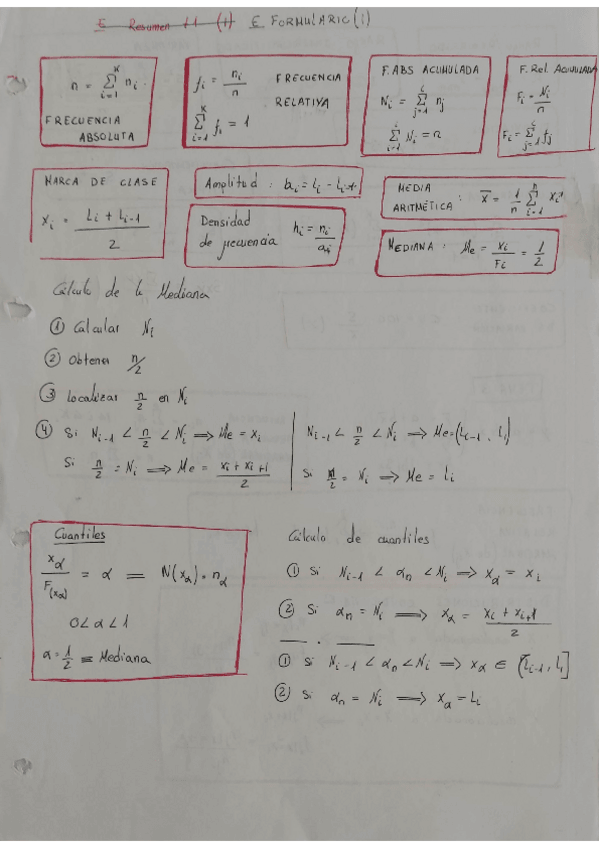 E Resumen t1 (1) E FORMULARIO (1)
n = \sum_{i=1}^{K} n_i
FRECUENCIA
ABSOLUTA
f_i = \frac{n_i}{n} FRECUENCIA
RELATIVA
\sum_{i=1}^{K} f_i = 1
F. ABS ACUMULADA
N_i = \sum_{j=1}^{i} n_j
\sum_{i=1}^{i} N_i = n
F. Rel. ACUMULADA
F_i = \frac{N_i}{n}
F_i = \sum_{j=1}^{i} f_j
MARCA DE CLASE
x_i = \frac{L_i + L_{i-1}}{2}
Amplitud : a_i = L_i - L_{i-1}
Densidad
de frecuencia h_i = \frac{n_i}{a_i}
MEDIA
ARITMÉTICA : \overline{x} = \frac{1}{n} \sum_{i=1}^{n} x_i
MEDIANA : Me = \frac{x_i}{F_i} = \frac{1}{2}
Cálculo de la Mediana
① Calcular N_i
② Obtener n/2
③ Localizar \frac{n}{2} en N_i
④ Si N_{i-1} < \frac{n}{2} < N_i ⟹ Me = x_i
Si \frac{n}{2} = N_i ⟹ Me = \frac{x_i + x_{i+1}}{2}
N_{i-1} < \frac{n}{2} < N_i ⟹ Me = (L_{i-1}, L_i)
Si \frac{n}{2} = N_i ⟹ Me = L_i
Cuantiles
\frac{x_α}{F(x_α)} = α = N(x_α) = n_α
0 < α < 1
α = \frac{1}{2} ≡ Mediana
Cálculo de cuantiles
① Si N_{i-1} < α_n < N_i ⟹ x_α = x_i
② Si α_n = N_i ⟹ x_α = \frac{x_i + x_{i+1}}{2}
① Si N_{i-1} < α_n < N_i ⟹ x_α ∈ (L_{i-1}, L_i]
② Si α_n = N_i ⟹ x_α = L_i